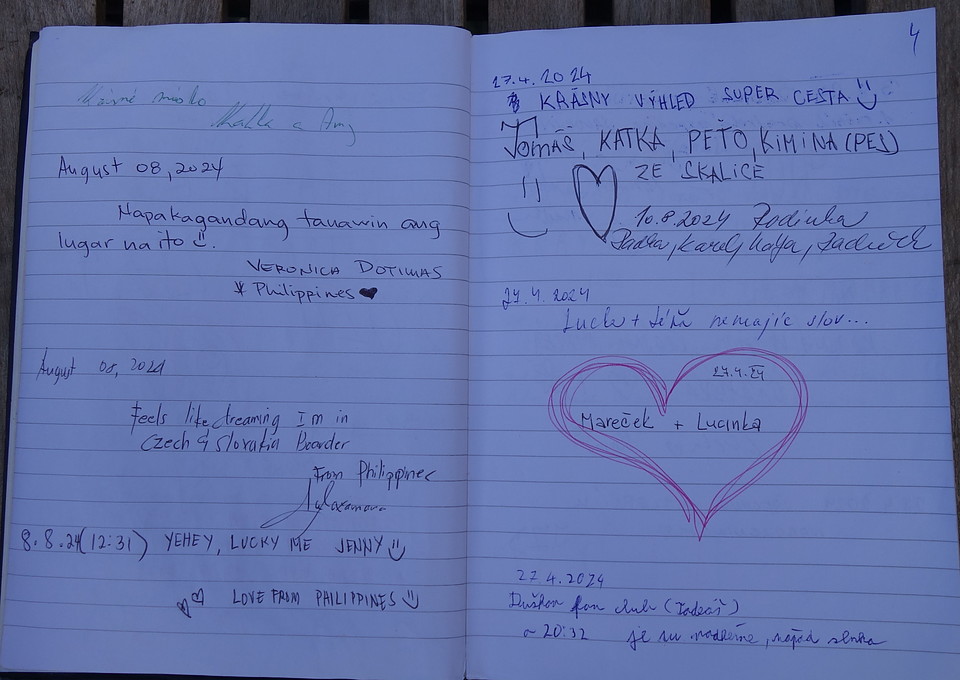 Krásné místo
a Amy
August 08, 2024
Napakagandang tanawin ang
lugar na ito
VERONICA DOTIMAS
Philippines
August 08, 2024
Feels like dreaming I'm in
Czech & Slovakia Boarder
From Philippines
8.8.24 (12:31) YEHEY, LUCKY ME JENNY
LOVE FROM PHILIPPINES
4
17.4.2024
KRÁSNY VÝHLED SUPER CESTA
TOMÁŠ, KATKA, PEŤO, KIMINA (PES)
ZE SKALICE
10.8.2024 Rodinka
Radka, Karel,
24.4.2024
Lucka + nemajíc slov...
27.4.24
Mareček + Lucinka
27.4.2024
fan club (Tadeáš)
~ 20:32 je tu nádherně, západ slnka